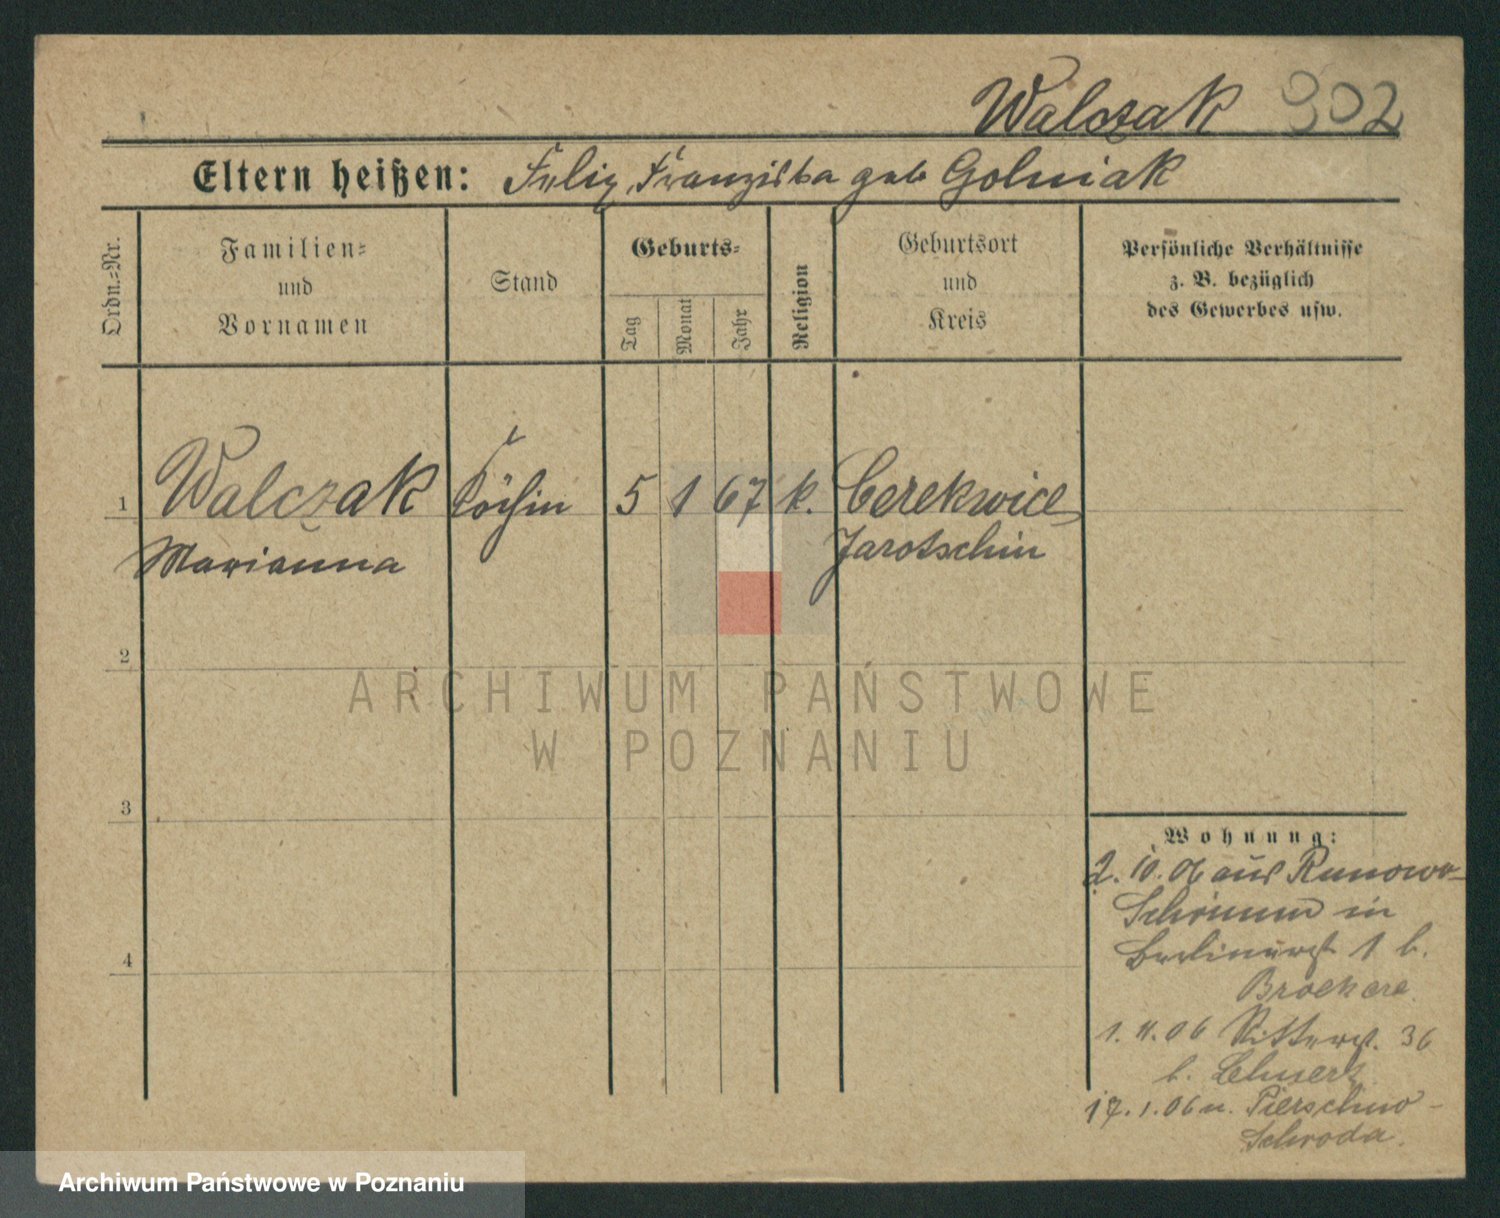 Walczak 902
Eltern heißen: Felix, Franziska geb Golniak
Ordn.=Nr.
Familien=
und
Vornamen
Stand
Geburts=
Tag
Monat
Jahr
Religion
Geburtsort
und
Kreis
Persönliche Verhältnisse
z. B. bezüglich
des Gewerbes usw.
1 Walczak Köchin 5 1 67 k. Cerekwice
Marianna Jarotschin
2
3
4
Wohnung:
2. 10. 06 aus Runowo-
Schrimm in
Berlinerst 1 b.
Brockere
1. 11. 06 Ritterst. 36
b.
17. 1. 06 n. Pierschno-
Schroda.
ARCHIWUM PAŃSTWOWE
W POZNANIU
Archiwum Państwowe w Poznaniu